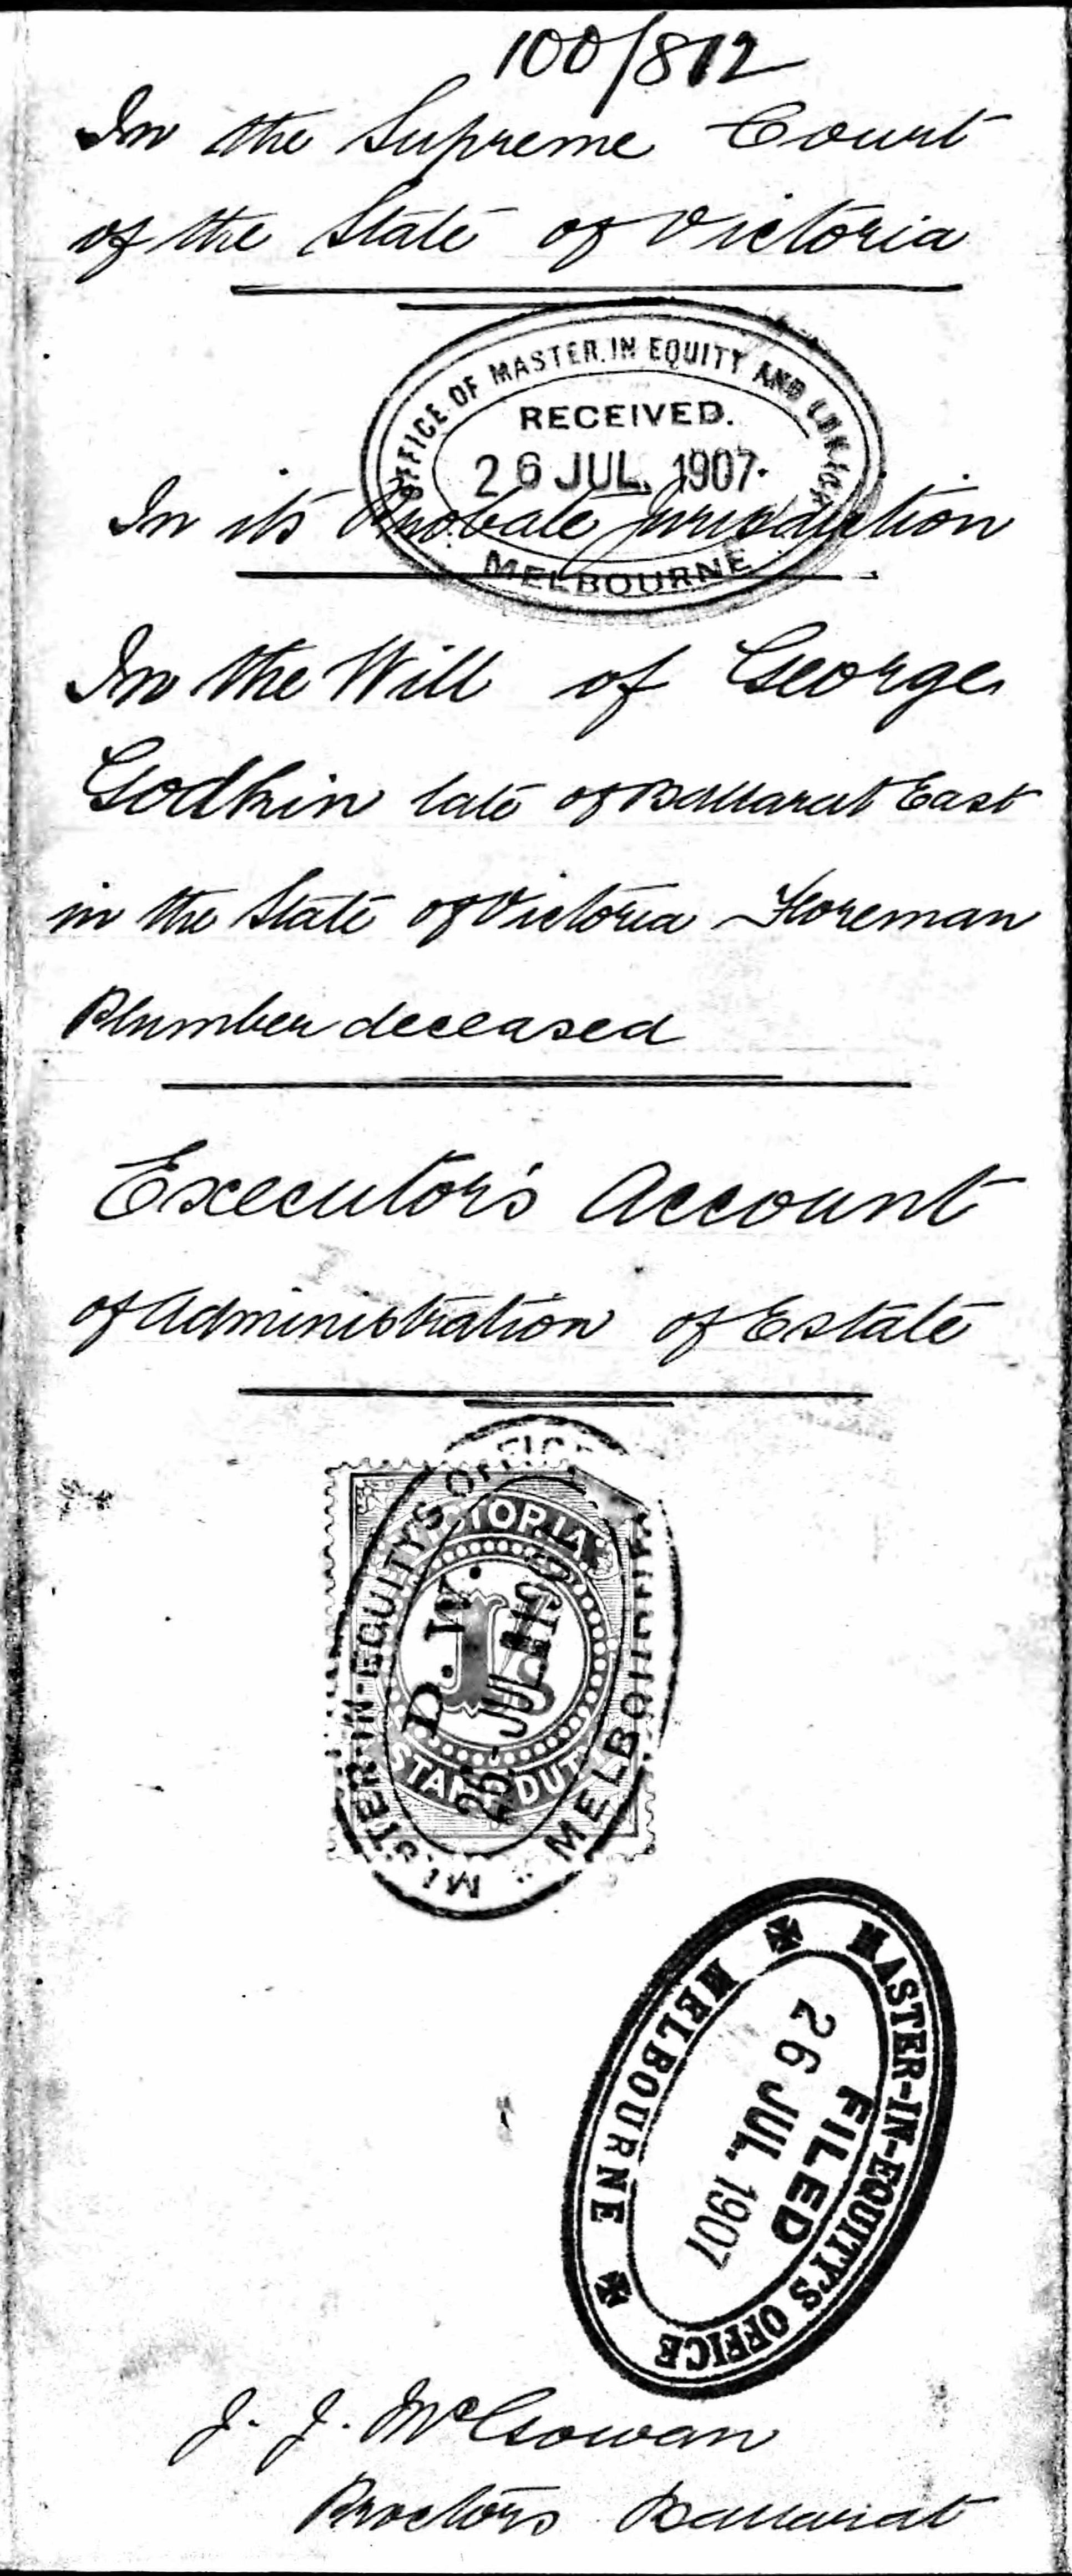 100/812
In the Supreme Court
of the State of Victoria
OFFICE OF MASTER IN EQUITY AND LUNACY
RECEIVED.
26 JUL. 1907.
In its Probate Jurisdiction
MELBOURNE
In the Will of George
Godkin late of Ballarat East
in the State of Victoria Foreman
Plumber deceased
Executor's Account
of Administration of Estate
MASTER-IN-EQUITY'S OFFICE
VICTORIA
D.W.
26 JUL
STAMP DUTY
MELBOURNE
MASTER-IN-EQUITY'S OFFICE
FILED
26 JUL. 1907
MELBOURNE
J. J. McGowan
Proctors Ballarat